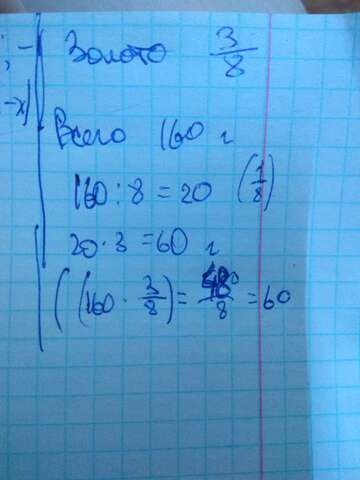 Золото 3/8
Всего 160 г
160 : 8 = 20 (1/8)
20 · 3 = 60 г
((160 · 3/8) = 480/8 = 60